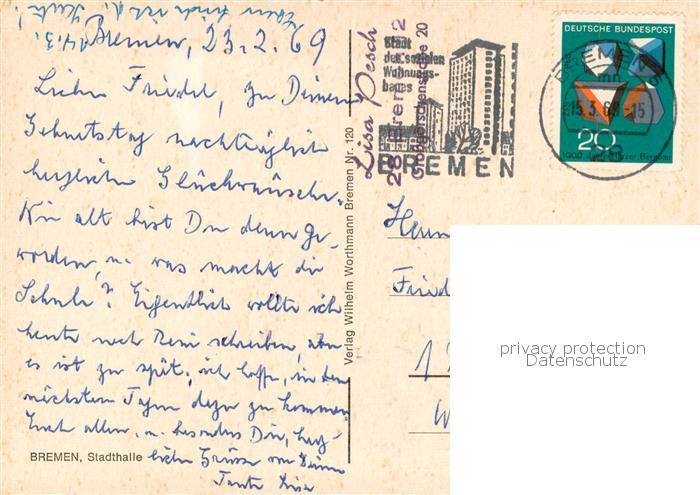 Bremen, 23.2.69
Lieber Friedel, zu Deinem
Geburtstag nachträglich
herzliche Glückwünsche.
Wie alt bist Du denn ge-
worden, u. was macht die
Schule? Eigentlich wollte ich
heute noch schreiben, aber
es ist zu spät, ich hoffe, in den
nächsten Tagen dazu zu kommen
Euch allen, u. besonders Dir, herz-
liche Grüsse von Deiner
Tante Lisa
BREMEN, Stadthalle
Verlag Wilhelm Worthmann Bremen Nr. 120
Lisa Pesch
28 Bremen 2
Großgörschenstraße 20
Stadt
des sozialen
Wohnungs-
baues
BREMEN
DEUTSCHE BUNDESPOST
20
BREMEN
15.3.69-15
28
Herrn
Fried
privacy protection
Datenschutz